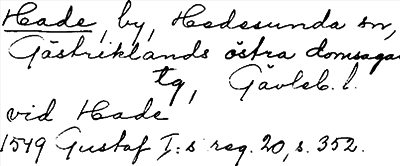 Hade, by, Hedesunda sn,
Gästriklands östra domsaga
tg, Gävleb. l.
vid Hade
1549 Gustaf I:s reg. 20, s. 352.